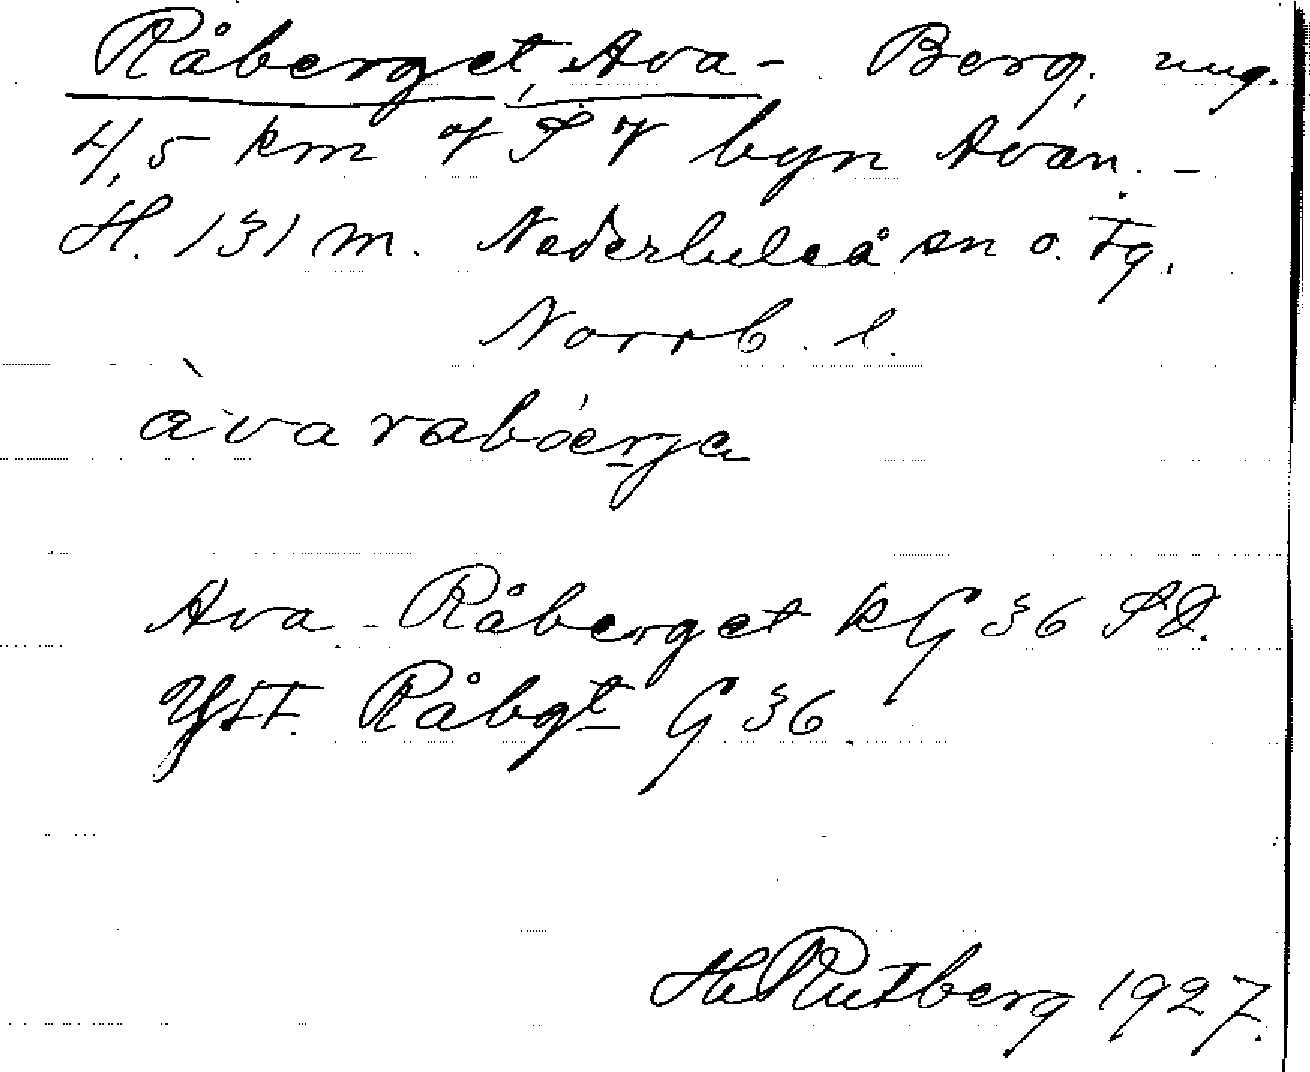 Råberget, Ava- Berg, ung.
4,5 km S byn Avan. -
H. 131 m. Nederluleå sn o. Tg.
Norrb. l.
Ava-Råberget kG 36 SO.
Ytt. Råbgt G 36.
H Rutberg 1927.